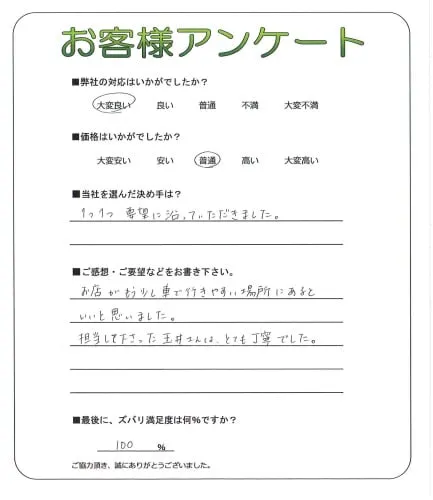 お客様アンケート
■弊社の対応はいかがでしたか？
大変良い 良い 普通 不満 大変不満
■価格はいかがでしたか？
大変安い 安い 普通 高い 大変高い
■当社を選んだ決め手は？
1つ1つ 要望に沿っていただきました。
■ご感想・ご要望などをお書き下さい。
お店がもう少し車で行きやすい場所にあると
いいと思いました。
担当して下さった玉井さんは、とても丁寧でした。
■最後に、ズバリ満足度は何%ですか？
100 %
ご協力頂き、誠にありがとうございました。